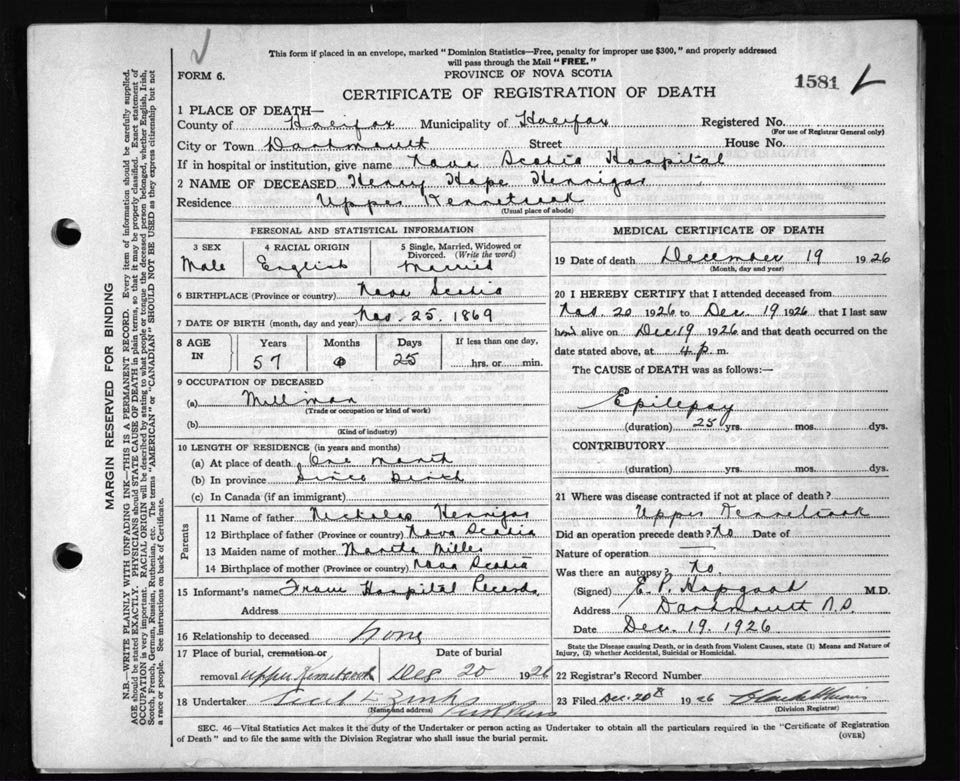 This form if placed in an envelope, marked "Dominion Statistics—Free, penalty for improper use $300," and properly addressed
will pass through the Mail "FREE."
FORM 6.
PROVINCE OF NOVA SCOTIA
1581
CERTIFICATE OF REGISTRATION OF DEATH
1 PLACE OF DEATH—
County of Halifax Municipality of Halifax Registered No.
(For use of Registrar General only)
City or Town Dartmouth Street House No.
If in hospital or institution, give name Nova Scotia Hospital
2 NAME OF DECEASED Henry Hope Hennigar
Residence Upper Kennetcook
(Usual place of abode)
PERSONAL AND STATISTICAL INFORMATION
3 SEX 4 RACIAL ORIGIN 5 Single, Married, Widowed or
Divorced. (Write the word)
Male English Married
6 BIRTHPLACE (Province or country) Nova Scotia
7 DATE OF BIRTH (month, day and year) Nov. 25. 1869
8 AGE IN Years Months Days If less than one day,
57 0 25 hrs. or min.
9 OCCUPATION OF DECEASED
(a) Mill man
(Trade or occupation or kind of work)
(b)
(Kind of industry)
10 LENGTH OF RESIDENCE (in years and months)
(a) At place of death One month
(b) In province Since Birth
(c) In Canada (if an immigrant)
Parents
11 Name of father Nickolas Hennigar
12 Birthplace of father (Province or country) Nova Scotia
13 Maiden name of mother Miller
14 Birthplace of mother (Province or country) Nova Scotia
15 Informant's name From Hospital Records
Address
16 Relationship to deceased None
17 Place of burial, cremation or Date of burial
removal Upper Kennetcook Dec 20 1926
18 Undertaker
(Name and address)
MEDICAL CERTIFICATE OF DEATH
19 Date of death December 19 1926
(Month, day and year)
20 I HEREBY CERTIFY that I attended deceased from
Nov. 20 1926 to Dec. 19 1926 that I last saw
him alive on Dec 19 1926 and that death occurred on the
date stated above, at 4 p. m.
The CAUSE of DEATH was as follows:—
Epilepsy
(duration) 25 yrs. mos. dys.
CONTRIBUTORY
(duration) yrs. mos. dys.
21 Where was disease contracted if not at place of death?
Upper Kennetcook
Did an operation precede death? No Date of
Nature of operation —
Was there an autopsy? No
(Signed) E. P. Hopgood M.D.
Address Dartmouth N.S.
Date Dec. 19. 1926
State the Disease causing Death, or in death from Violent Causes, state (1) Means and Nature of
Injury, (2) whether Accidental, Suicidal or Homicidal.
22 Registrar's Record Number
23 Filed Dec. 20 1926
(Division Registrar)
SEC. 46—Vital Statistics Act makes it the duty of the Undertaker or person acting as Undertaker to obtain all the particulars required in the "Certificate of Registration
of Death" and to file the same with the Division Registrar who shall issue the burial permit.
(OVER)
MARGIN RESERVED FOR BINDING
N.B.—WRITE PLAINLY WITH UNFADING INK—THIS IS A PERMANENT RECORD. Every item of information should be carefully supplied.
AGE should be stated EXACTLY. PHYSICIANS should STATE CAUSE OF DEATH in plain terms, so that it may be properly classified. Exact statement of
OCCUPATION is very important. RACIAL ORIGIN will be described by stating to what people or tongue the deceased person belonged, whether English, Irish,
Scotch, French, German, Russian, Ruthenian, etc. The terms "AMERICAN" or "CANADIAN" SHOULD NOT BE USED as they express citizenship but not
a race or people. See instructions on back of Certificate.